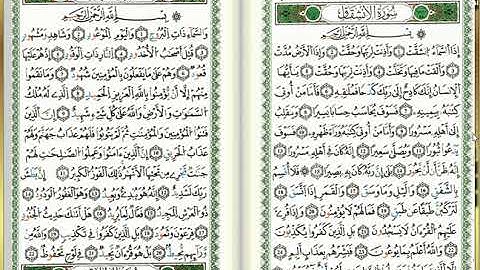 سُورَةُ الِانشِقَاقِ
بِسْمِ اللَّهِ الرَّحْمَٰنِ الرَّحِيمِ
إِذَا ٱلسَّمَآءُ ٱنشَقَّتْ ١ وَأَذِنَتْ لِرَبِّهَا وَحُقَّتْ ٢ وَإِذَا ٱلْأَرْضُ مُدَّتْ
٣ وَأَلْقَتْ مَا فِيهَا وَتَخَلَّتْ ٤ وَأَذِنَتْ لِرَبِّهَا وَحُقَّتْ ٥ يَٰٓأَيُّهَا
ٱلْإِنسَٰنُ إِنَّكَ كَادِحٌ إِلَىٰ رَبِّكَ كَدْحًا فَمُلَٰقِيهِ ٦ فَأَمَّا مَنْ أُوتِىَ
كِتَٰبَهُۥ بِيَمِينِهِۦ ٧ فَسَوْفَ يُحَاسَبُ حِسَابًا يَسِيرًا ٨ وَيَنقَلِبُ
إِلَىٰٓ أَهْلِهِۦ مَسْرُورًا ٩ وَأَمَّا مَنْ أُوتِىَ كِتَٰبَهُۥ وَرَآءَ ظَهْرِهِۦ ١٠ فَسَوْفَ
يَدْعُوا۟ ثُبُورًا ١١ وَيَصْلَىٰ سَعِيرًا ١٢ إِنَّهُۥ كَانَ فِىٓ أَهْلِهِۦ مَسْرُورًا ١٣
إِنَّهُۥ ظَنَّ أَن لَّن يَحُورَ ١٤ بَلَىٰٓ إِنَّ رَبَّهُۥ كَانَ بِهِۦ بَصِيرًا ١٥ فَلَآ أُقْسِمُ
بِٱلشَّفَقِ ١٦ وَٱلَّيْلِ وَمَا وَسَقَ ١٧ وَٱلْقَمَرِ إِذَا ٱتَّسَقَ ١٨
لَتَرْكَبُنَّ طَبَقًا عَن طَبَقٍ ١٩ فَمَا لَهُمْ لَا يُؤْمِنُونَ ٢٠ وَإِذَا قُرِئَ
عَلَيْهِمُ ٱلْقُرْءَانُ لَا يَسْجُدُونَ ٢١ بَلِ ٱلَّذِينَ كَفَرُوا۟ يُكَذِّبُونَ ٢٢
وَٱللَّهُ أَعْلَمُ بِمَا يُوعُونَ ٢٣ فَبَشِّرْهُم بِعَذَابٍ أَلِيمٍ ٢٤
بِسْمِ اللَّهِ الرَّحْمَٰنِ الرَّحِيمِ
وَٱلسَّمَآءِ ذَاتِ ٱلْبُرُوجِ ١ وَٱلْيَوْمِ ٱلْمَوْعُودِ ٢ وَشَاهِدٍ وَمَشْهُودٍ
٣ قُتِلَ أَصْحَٰبُ ٱلْأُخْدُودِ ٤ ٱلنَّارِ ذَاتِ ٱلْوَقُودِ ٥ إِذْ هُمْ عَلَيْهَا
قُعُودٌ ٦ وَهُمْ عَلَىٰ مَا يَفْعَلُونَ بِٱلْمُؤْمِنِينَ شُهُودٌ ٧ وَمَا نَقَمُوا۟
مِنْهُمْ إِلَّآ أَن يُؤْمِنُوا۟ بِٱللَّهِ ٱلْعَزِيزِ ٱلْحَمِيدِ ٨ ٱلَّذِى لَهُۥ مُلْكُ
ٱلسَّمَٰوَٰتِ وَٱلْأَرْضِ وَٱللَّهُ عَلَىٰ كُلِّ شَىْءٍ شَهِيدٌ ٩ إِنَّ ٱلَّذِينَ
فَتَنُوا۟ ٱلْمُؤْمِنِينَ وَٱلْمُؤْمِنَٰتِ ثُمَّ لَمْ يَتُوبُوا۟ فَلَهُمْ عَذَابُ جَهَنَّمَ وَلَهُمْ
عَذَابُ ٱلْحَرِيقِ ١٠ إِنَّ ٱلَّذِينَ ءَامَنُوا۟ وَعَمِلُوا۟ ٱلصَّٰلِحَٰتِ لَهُمْ
جَنَّٰتٌ تَجْرِى مِن تَحْتِهَا ٱلْأَنْهَٰرُ ذَٰلِكَ ٱلْفَوْزُ ٱلْكَبِيرُ ١١ إِنَّ بَطْشَ
رَبِّكَ لَشَدِيدٌ ١٢ إِنَّهُۥ هُوَ يُبْدِئُ وَيُعِيدُ ١٣ وَهُوَ ٱلْغَفُورُ ٱلْوَدُودُ ١٤
ذُو ٱلْعَرْشِ ٱلْمَجِيدُ ١٥ فَعَّالٌ لِّمَا يُرِيدُ ١٦ هَلْ أَتَىٰكَ حَدِيثُ ٱلْجُنُودِ ١٧
فِرْعَوْنَ وَثَمُودَ ١٨ بَلِ ٱلَّذِينَ كَفَرُوا۟ فِى تَكْذِيبٍ ١٩ وَٱللَّهُ مِن
وَرَآئِهِم مُّحِيطٌۢ ٢٠ بَلْ هُوَ قُرْءَانٌ مَّجِيدٌ ٢١ فِى لَوْحٍ مَّحْفُوظٍۭ ٢٢